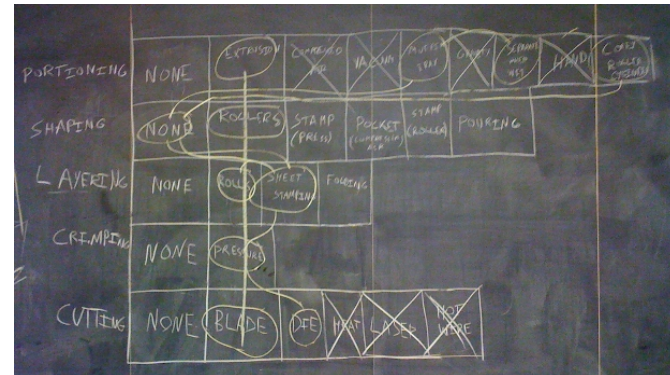 PORTIONING NONE EXTRUSION COMPRESSED AIR VACUUM GRAVITY HANDS
SHAPING NONE ROLLERS STAMP (PRESS) POCKET (COMPRESSION STAMP (ROLLER) POURING
LAYERING NONE ROLLS SHEET STAMPING FOLDING
CRIMPING NONE PRESSURE
CUTTING NONE BLADE DIE HEAT LASER HOT WIRE